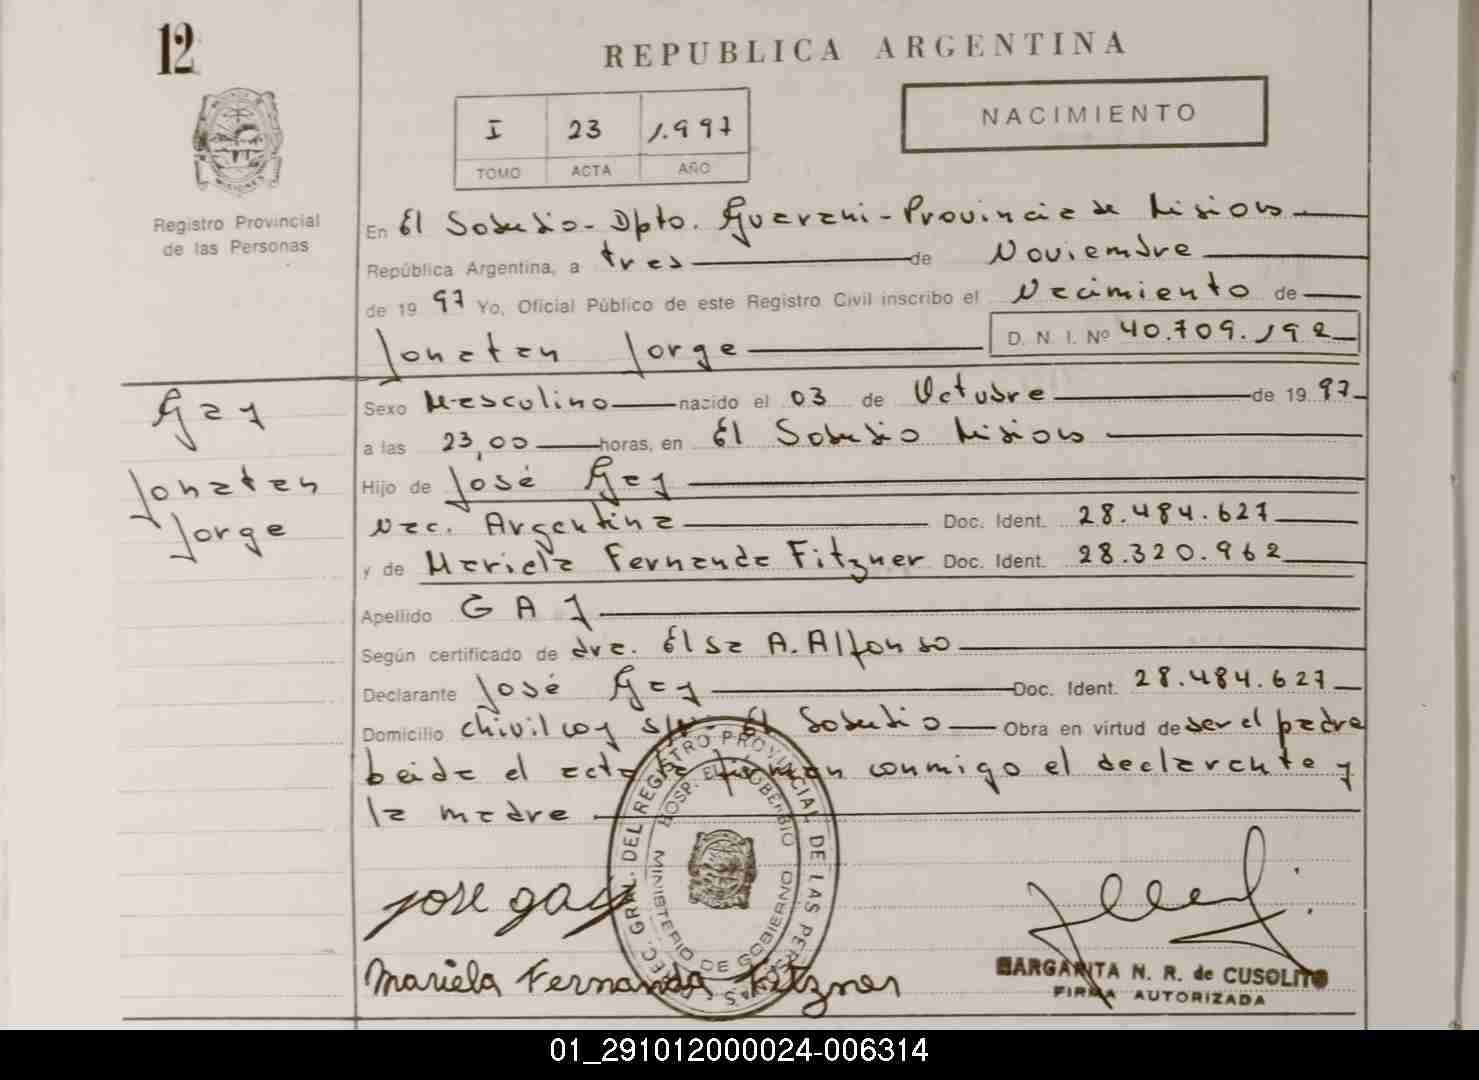 12
REPUBLICA ARGENTINA
NACIMIENTO
I 23 1.997
TOMO ACTA AÑO
Registro Provincial
de las Personas
En El Soberbio - Dpto. Guarani - Provincia de Misiones
República Argentina, a tres de Noviembre
de 19 97 Yo, Oficial Público de este Registro Civil inscribo el Nacimiento de
Jonatan Jorge D. N. I. Nº 40.709.192
Gay
Jonatan
Jorge
Sexo Masculino nacido el 03 de Octubre de 19 97
a las 23,00 horas, en El Soberbio Misiones
Hijo de José Gay
Nac. Argentina Doc. Ident. 28.484.627
y de Mariela Fernanda Fitzner Doc. Ident. 28.320.962
Apellido GAY
Según certificado de dra. Elsa A. Alfonso
Declarante José Gay Doc. Ident. 28.484.627
Domicilio Chivilcoy s/n - El Soberbio Obra en virtud de ser el padre
leida el acta la firman conmigo el declarante y
la madre
DIREC. GRAL. DEL REGISTRO PROVINCIAL DE LAS PERSONAS
HOSP. EL SOBERBIO
MINISTERIO DE GOBIERNO
jose gay
Mariela Fernanda Fitzner
MARGARITA N. R. de CUSOLITO
FIRMA AUTORIZADA
01_291012000024-006314